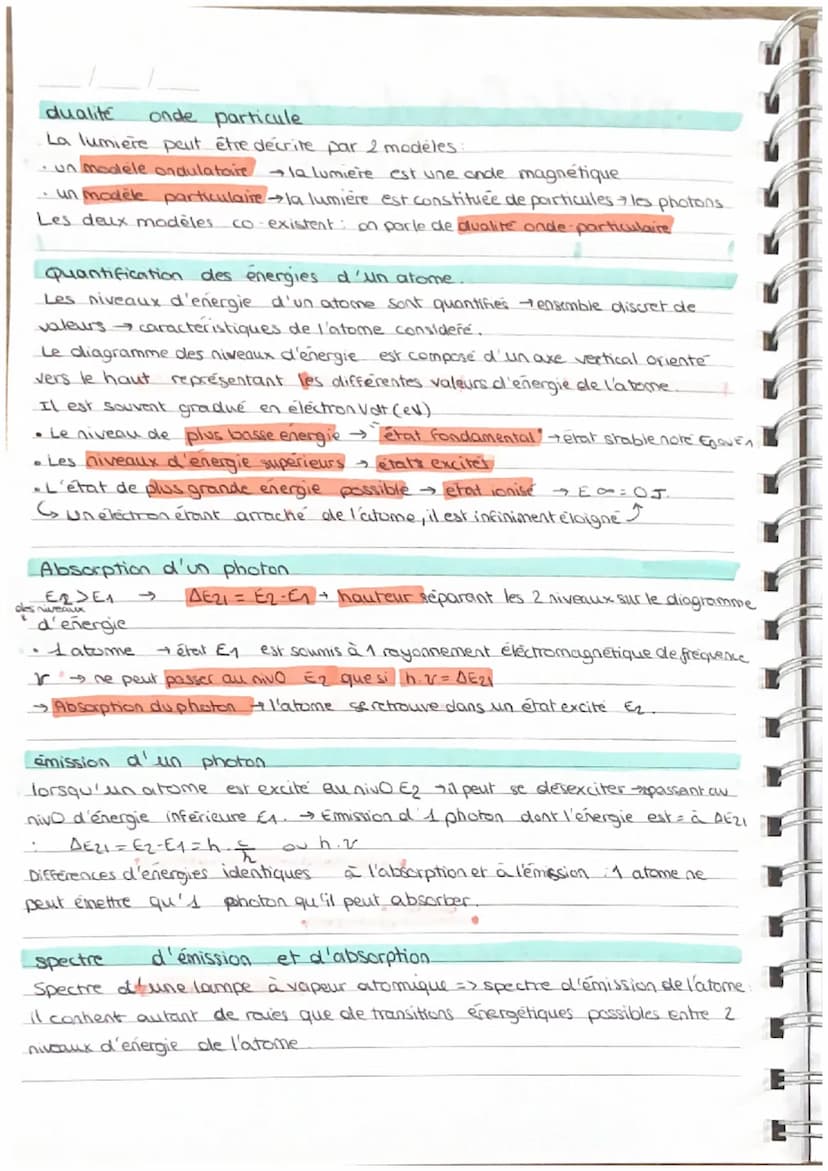 __/__/__
dualité onde particule
La lumière peut être décrite par 2 modèles :
· un modèle ondulatoire → la lumière est une onde magnétique
· un modèle particulaire → la lumière est constituée de particules → les photons
Les deux modèles co-existent : on parle de dualité onde-particulaire
Quantification des énergies d'un atome.
Les niveaux d'énergie d'un atome sont quantifiés → ensemble discret de
valeurs → caractéristiques de l'atome considéré.
Le diagramme des niveaux d'énergie est composé d'un axe vertical orienté
vers le haut représentant les différentes valeurs d'énergie de l'atome.
Il est souvent gradué en électronVolt (eV)
• Le niveau de plus basse énergie → "état fondamental" → état stable noté E0 ou E1
• Les niveaux d'énergie supérieurs → états excités
• L'état de plus grande énergie possible → état ionisé → E∞ = 0 J.
↳ un électron étant arraché de l'atome, il est infiniment éloigné ↑
Absorption d'un photon
E2 > E1 → ΔE21 = E2-E1 → hauteur séparant les 2 niveaux sur le diagramme
des niveaux
d'énergie
• 1 atome → état E1 est soumis à 1 rayonnement électromagnétique de fréquence
ν → ne peut passer au nivO E2 que si h.ν = ΔE21
→ Absorption du photon → l'atome se retrouve dans un état excité E2.
émission d'un photon
lorsqu'un atome est excité au nivO E2 → il peut se désexciter → passant au
nivO d'énergie inférieure E1. → Emission d'1 photon dont l'énergie est = à ΔE21
: ΔE21 = E2-E1 = h . c/h ou h.ν
Différences d'énergies identiques à l'absorption et à l'émission : 1 atome ne
peut émettre qu'1 photon qu'il peut absorber.
spectre d'émission et d'absorption
Spectre d'une lampe à vapeur atomique => spectre d'émission de l'atome :
il contient autant de raies que de transitions énergétiques possibles entre 2
niveaux d'énergie de l'atome